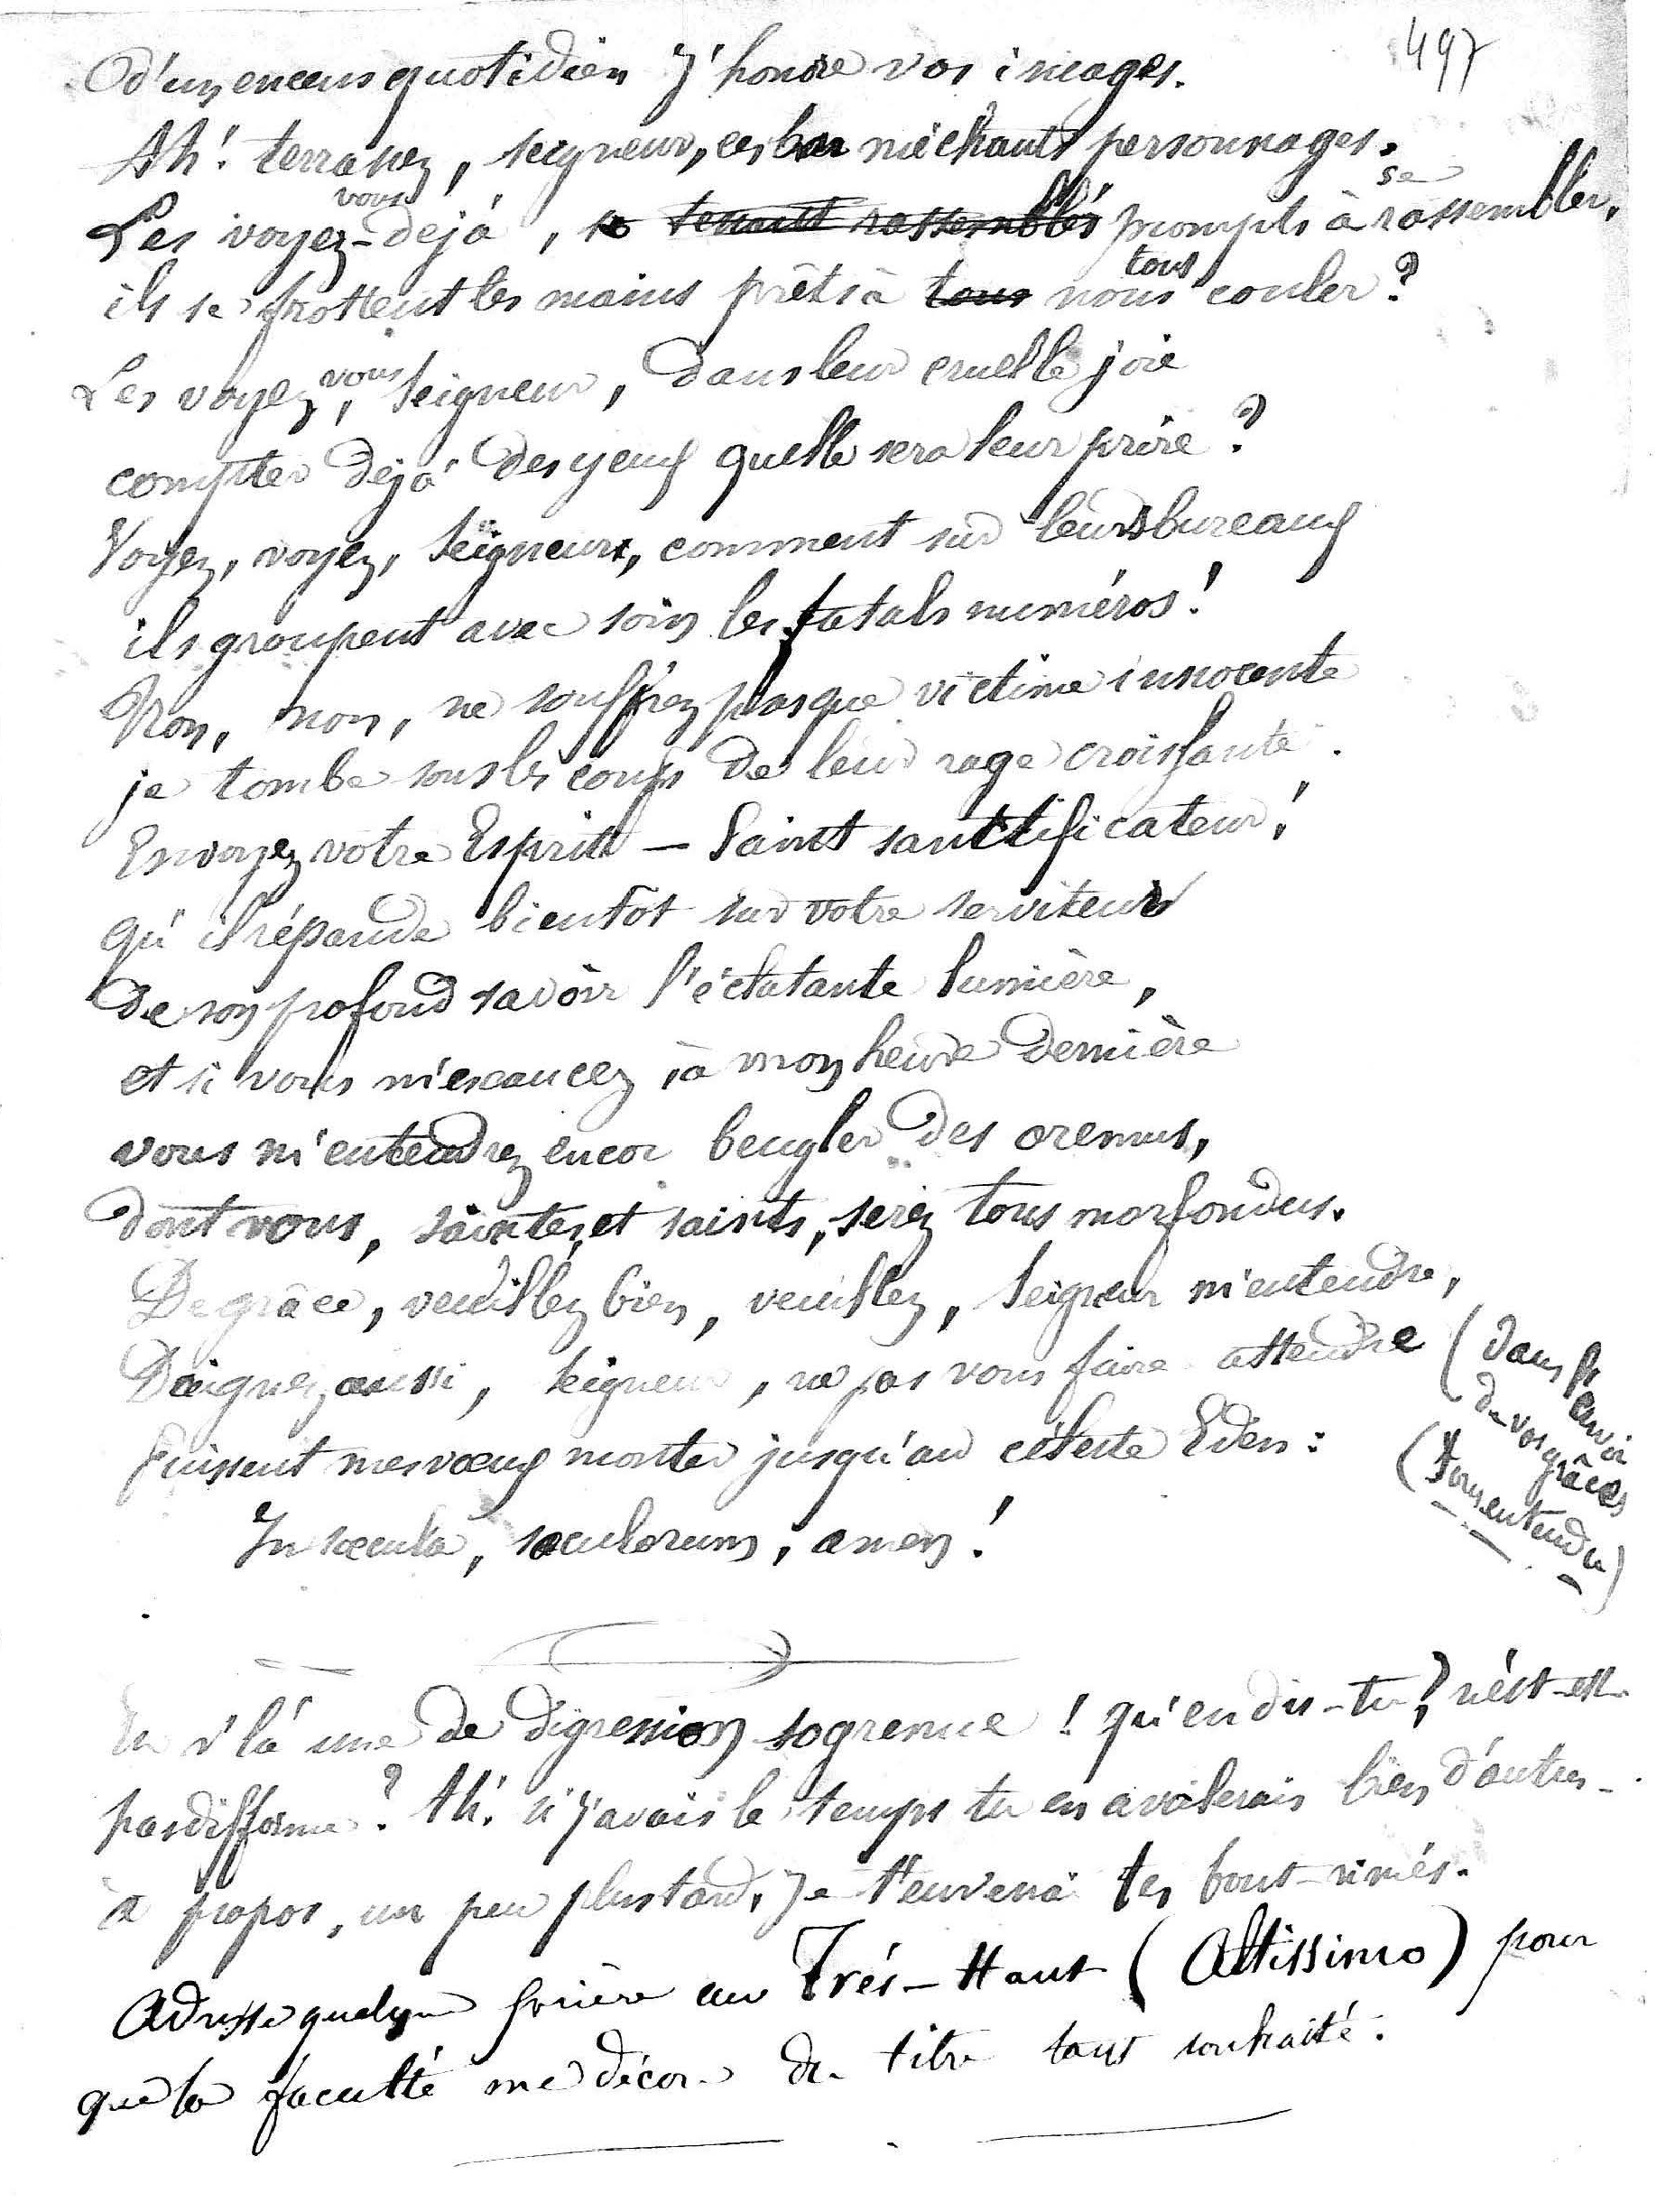 497
D'un encens quotidien J'honore vos images.
Ah! terrassez, seigneur, ces méchants personnages.
Les voyez-vous déjà, se tenant rassemblés prompts à se rassembler,
ils se frottent les mains prêts à tous nous tous couler?
Les voyez vous, Seigneur, dans leur cruelle joie
compter déjà des yeux quelle sera leur proie?
Voyez, voyez, Seigneur, comment sur leurs bureaux
ils groupent avec soin les fatals numéros!
Non, non, ne souffrez pas que victime innocente
je tombe sous les coups de leur rage croissante.
Envoyez votre Esprit - Saint sanctificateur!
qu'il répande bientôt sur votre serviteur
de son profond savoir l'éclatante lumière,
et si vous m'exaucez, à mon heure dernière
vous m'entendrez encor beugler des oremus,
dont vous, saintes, et saints, serez tous morfondus.
De grâce, veuillez bien, veuillez, Seigneur m'entendre,
Daignez aussi, Seigneur, ne pas vous faire attendre (dans l'envoi
de vos grâces
(sousentendu)
Puissent mes vœux monter jusqu'au céleste Eden:
In sœcula, sœculorum, amen!
En v'là une de digression sogrenue! qu'en dis-tu? n'est-elle
pas difforme? Ah! si j'avais le temps tu en avalerais bien d'autres-
à propos, un peu plus tard, Je t'enverrai tes bout-rimés.
Adresse quelque prière au Très-Haut (Altissimo) pour
que la faculté me décore du titre tant souhaité.